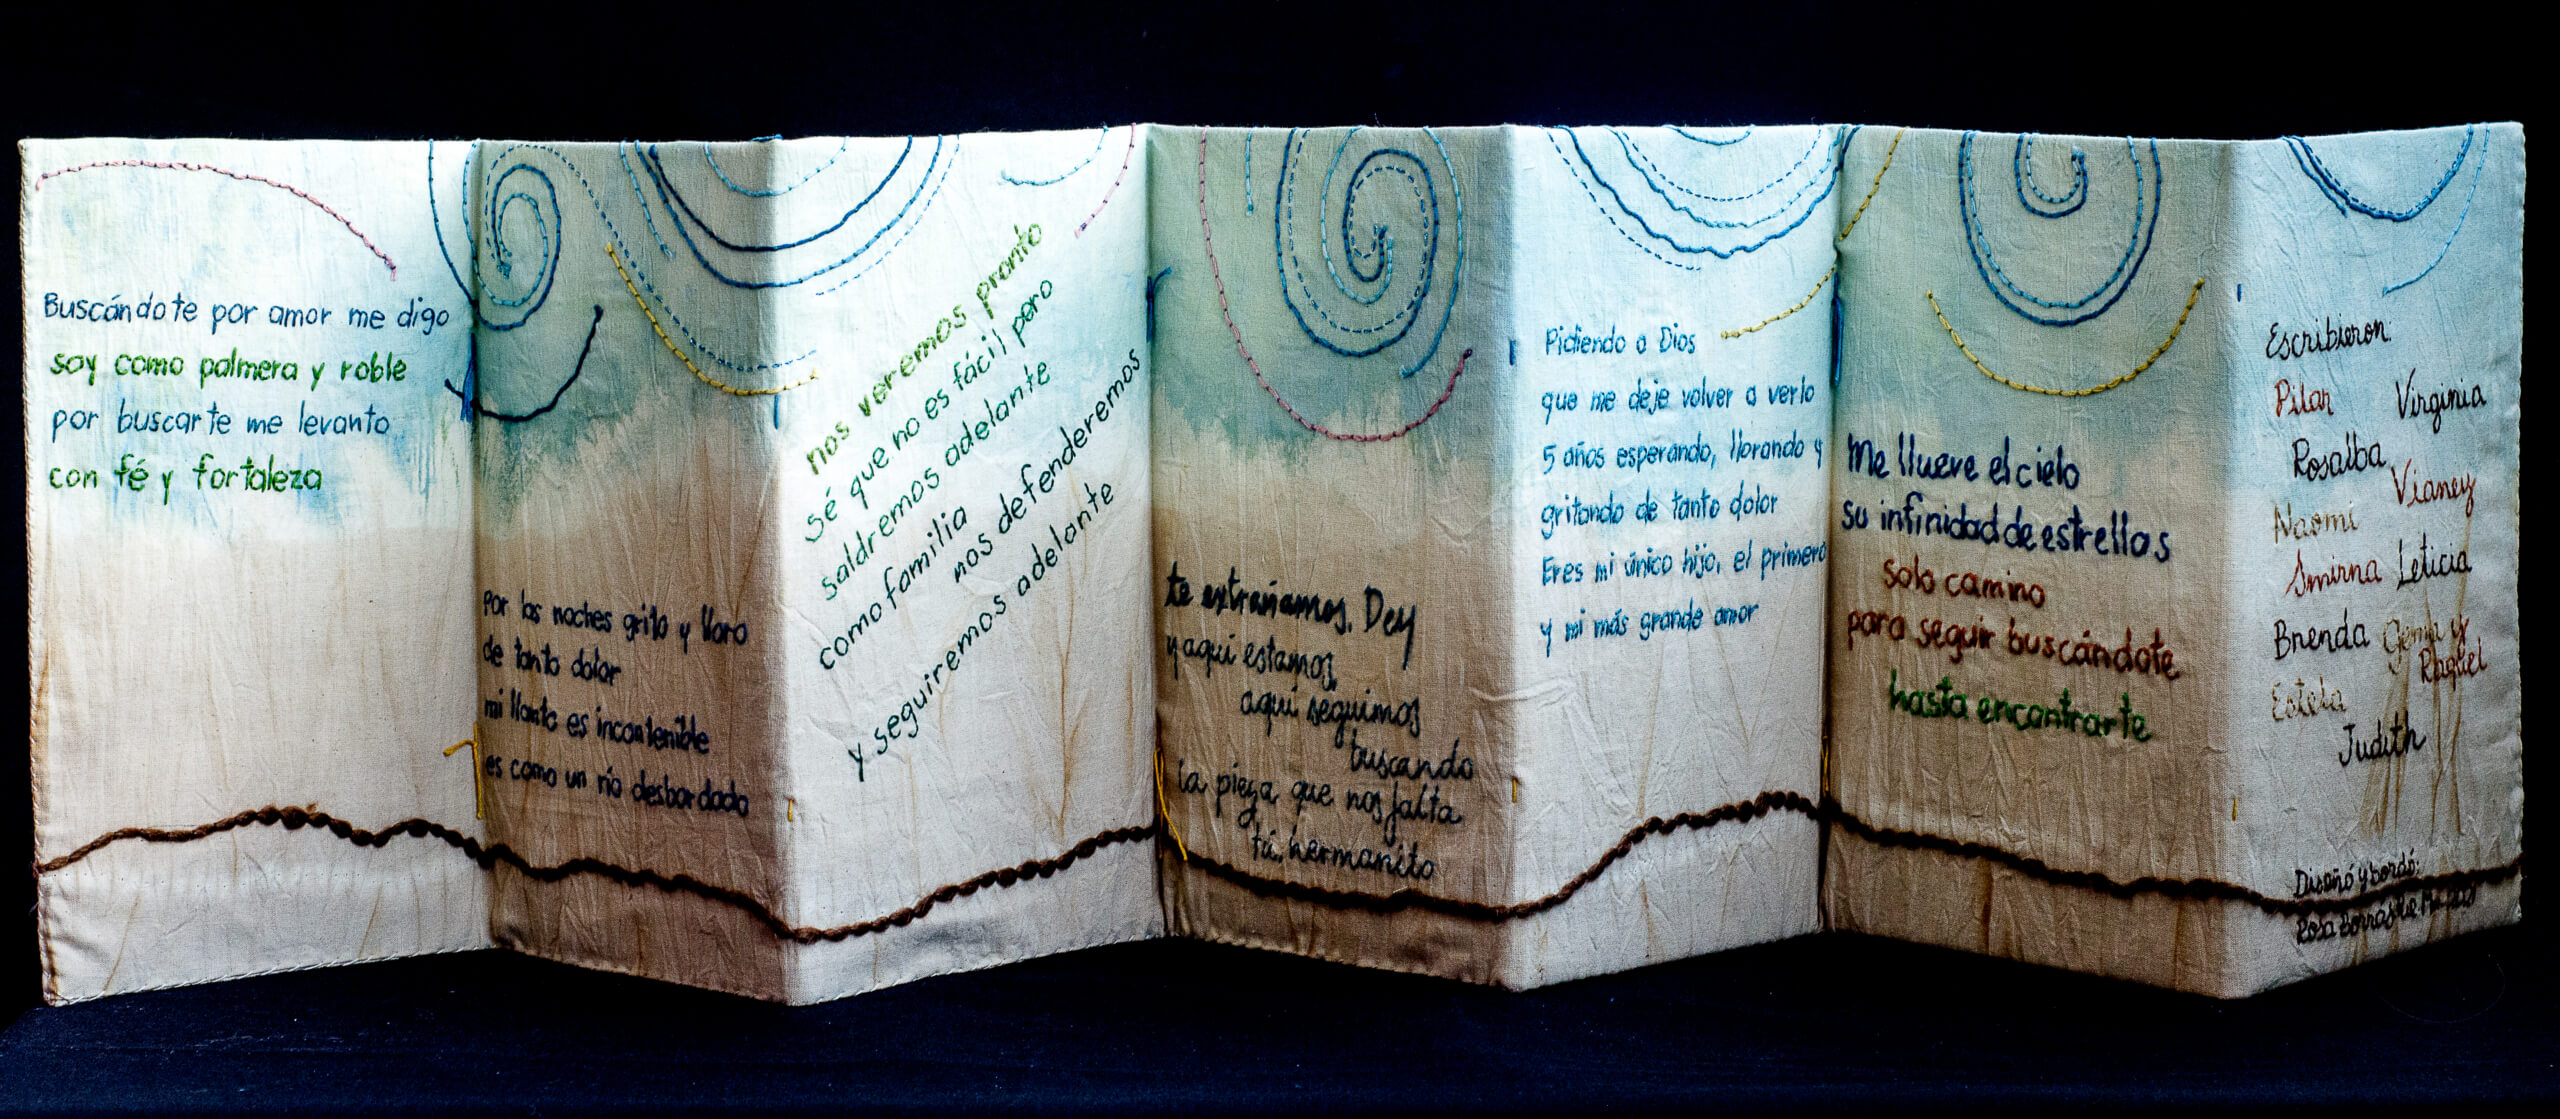 Buscándote por amor me digo
soy como palmera y roble
por buscarte me levanto
con fé y fortaleza
por las noches grito y lloro
de tanto dolor
mi llanto es incontenible
es como un río desbordado
nos veremos pronto
sé que no es fácil pero
saldremos adelante
como familia
nos defenderemos
y seguiremos adelante
te extrañamos, Dey
y aquí estamos,
aquí seguimos
buscando
la pieza que nos falta
tú, hermanito
Pidiendo a Dios
que me deje volver a verlo
5 años esperando, llorando y
gritando de tanto dolor
Eres mi único hijo, el primero
y mi más grande amor
Me llueve el cielo
su infinidad de estrellas
solo camino
para seguir buscándote
hasta encontrarte
Escribieron:
Pilar Virginia
Rosalba
Vianey
Naomi
Smirna Leticia
Brenda Gema y
Raquel
Estela
Judith
Diseñó y bordó:
Rosa Borrás